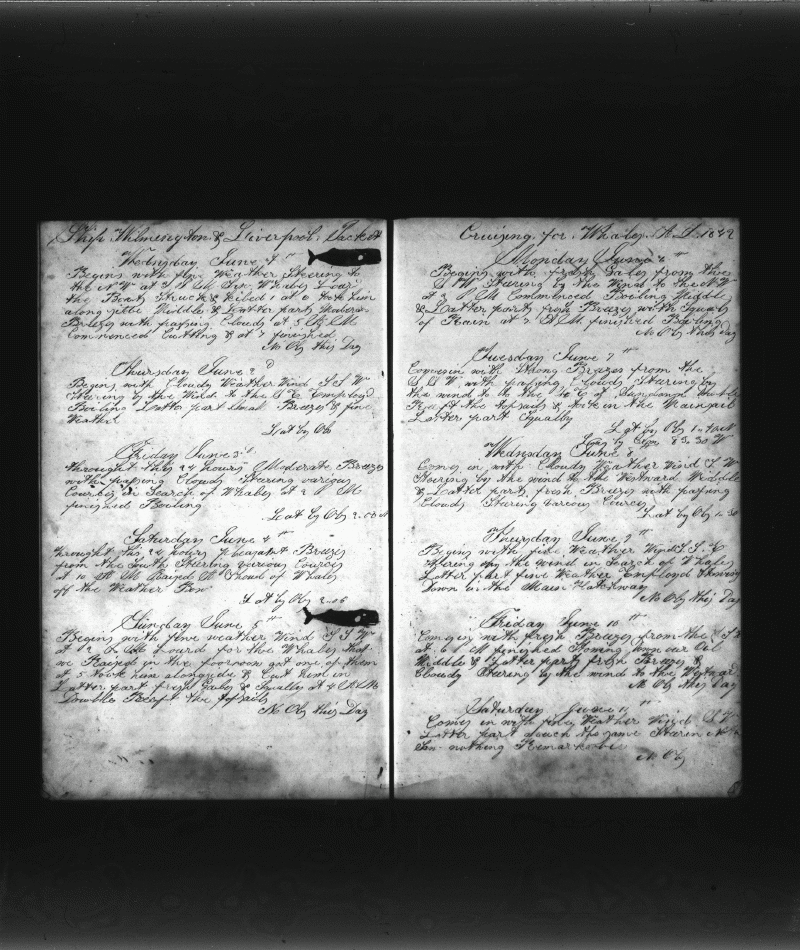 Ship Wilmington & Liverpool Packet
Wednsday June 1st
Begins with fine Weather Steering to
the N W at 3 P M Saw Whales Lourd
the Boats Struck & Killed 1 at 6 took him
along side Middle & Latter part Moderate
Breezes with passing Clouds at 5 A M
Commenced Cutting & at 7 finished
No Obs this Day
Thursday June 2 d
Begins with Cloudy Weather Wind S S W
Steering by the Wind to the S E Employd
Boiling Latter part Small Breezes & fine
Weather
Lat by Obs
Friday June 3d
throught this 24 hours Moderate Breezes
with passing Clouds Steering various
Courses in Search of Whales at 2 A M
finished Boiling
Lat by Obs 2.08
Saturday June 4 th
throught this 24 hours pleasant Breezes
from the South Steering various Courses
at 10 A M Raised a Shoal of Whales
off the Weather Bow
Lat by Obs 2.06
Sunday June 5 th
Begins with fine weather Wind S S W
at 12 Lourd for the Whales that
we Raised in the foornoon got one of them
at 5 took him alongside & Cut him in
Latter part fresh Gales & Squalls at 4 A M
Double Reeft the topsails
No Obs this Day
Cruising for Whales A.D. 1842
Monday June 6 th
Begins with fresh Gales from the
S W Steering by the Wind to the N W
at 3 P M Commenced Boiling Middle
& Latter part fresh Breezes with Squalls
of Rain at 7 A M finished Boiling
No Obs this Day
Tuesday June 7 th
Comes in with Strong Breezes from the
S S W with passing Clouds Steering by
the wind to the at Sundown double
Reeft the topsails & took in the Mainsail
Latter part Squally
Lat by Obs
Long by 83.30 W
Wednsday June 8
Comes in with Cloudy Weather Wind S W
Steering by the wind to the Westward Middle
& Latter part fresh Breezes with passing
Clouds Steering various Courses
Lat by Obs 1.30
Thursday June 9 th
Begins with fine Weather Wind S S E
Steering by the wind in Search of Whales
Latter part fine Weather Employd Stowing
Down in the Main Hatchway
No Obs this Day
Friday June 10 th
Comes in with fresh Breezes from the S
at 6 P M finished Stowing Down our Oil
Middle & Latter part fresh Breezes &
Cloudy Steering by the wind to the Westward
No Obs this Day
Saturday June 11 th
Comes in with fine Weather Wind S
Latter part much the same Steering
nothing Remarkable
No Obs